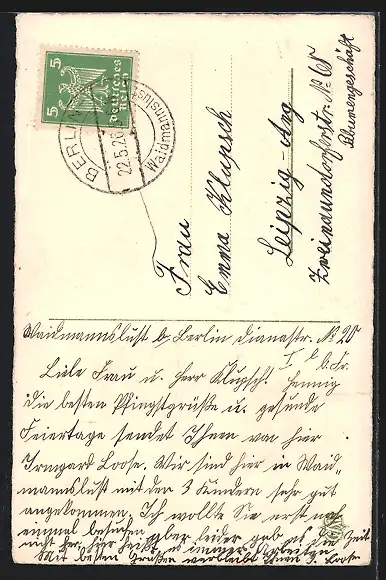 5 Deutsches Reich 5
BERLIN
22.5.26
Waidmannslust
Frau
Emma Klupsch
Leipzig-Ang
Zweinaundorferstr. No 65
Blumengeschäft
Waidmannslust b/ Berlin Dianastr. No 20
I b. Fr. Hennig
Liebe Frau u. Herr Klupsch!
Die besten Pfingstgrüße u. gesunde
Feiertage sendet Ihnen von hier
Irmgard Loose. Wir sind hier in Waid-
mannslust mit den 3 Kindern sehr gut
angekommen. Ich wollte Sie erst noch
einmal besuchen aber leider gab es die Zeit
nicht her, hier heißt es immer arbeiten
Mit besten Grüßen verbleibt Ihnen I. Loose